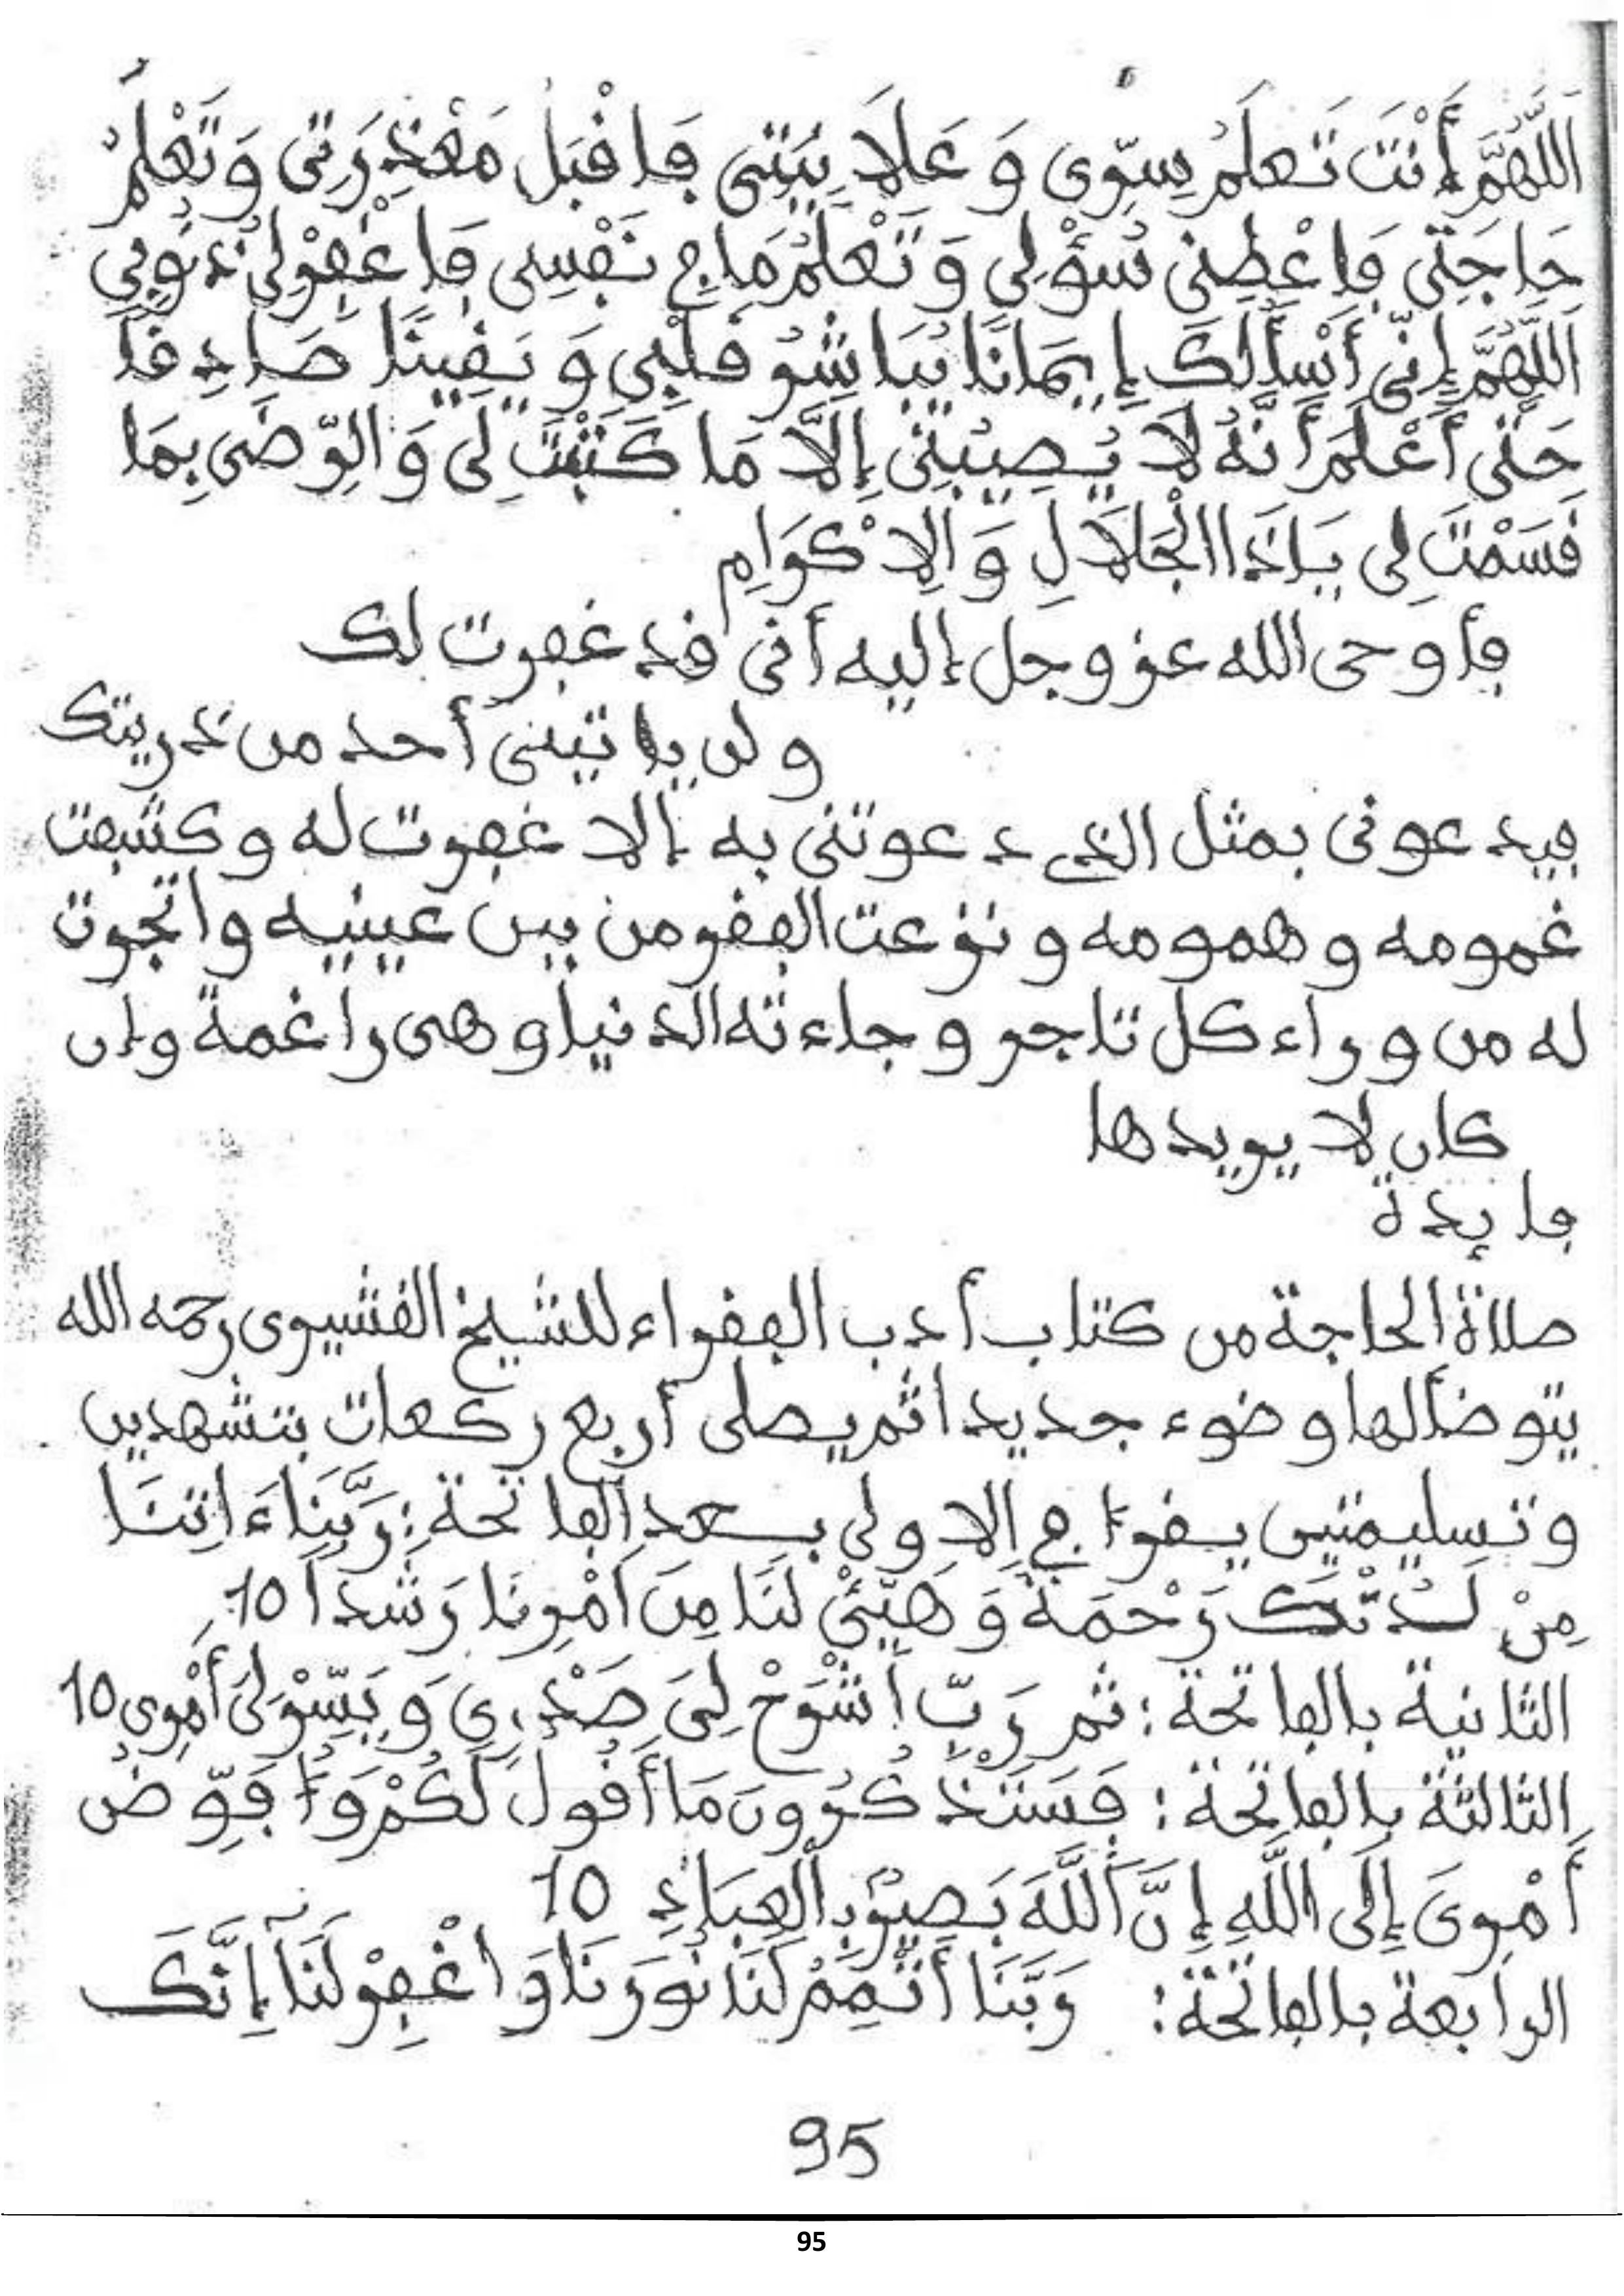 اَللَّهُمَّ أَنْتَ تَعلَمُ سِرِّى وَ عَلَانِيَتِى فَاقْبَلْ مَعْذِرَتِى وَتَعْلَمُ
حَاجَتِى فَاعْطِنِى سُؤْلِى وَ تَعْلَمُ مَا فِى نَفْسِى فَاغْفِرْلِى ذُنُوبِى
اَللَّهُمَّ إِنِّى أَسْأَلُكَ إِيمَانًا يُبَاشِرُ قَلْبِى وَ يَقِينًا صَادِقًا
حَتَّى أَعْلَمَ أَنَّهُ لَا يُصِيبُنِى إِلَّا مَا كَتَبْتَ لِى وَ الرِّضَى بِمَا
قَسَمْتَ لِى يَاذَا الْجَلَالِ وَ الِاكْرَامِ
فأوحى الله عز وجل إليه أنى قد غفرت لك
ولن ياتينى أحد من ذريتك
فيدعونى بمثل الذى دعوتنى به إلا غفرت له وكشفت
غمومه وهمومه ونزعت الفقر من بين عينيه واتجرت
له من وراء كل تاجر وجاءته الدنيا وهى راغمة وإن
كان لا يريدها
فايدة
صلاة الحاجة من كتاب أدب الفقراء للشيخ القشيرى رحمه الله
يتوضألها وضوء جديدا ثم يصلى أربع ركعات بتشهدين
وتسليمتين يقرا فى الاولى بعد الفاتحة: رَبَّنَا ءَاتِنَا
مِنْ لَدُنْكَ رَحْمَةً وَ هَيِّئْ لَنَا مِنَ اَمْرِنَا رَشَدًا 10
الثانية بالفاتحة: ثم رَبِّ اشْرَحْ لِىَ صَدْرِى وَ يَسِّرْ لِىَ أَمْرِى 10
الثالثة بالفاتحة: فَسَتَذْكُرُونَ مَا أَقُولُ لَكُمْ وَأُفَوِّضُ
أَمْرِىَ إِلَى اللَّهِ إِنَّ اَللَّهَ بَصِيرٌ بِالْعِبَادِ 10
الرابعة بالفاتحة: رَبَّنَا أَتْمِمْ لَنَا نُورَنَا وَاغْفِرْ لَنَا إِنَّكَ
95
95